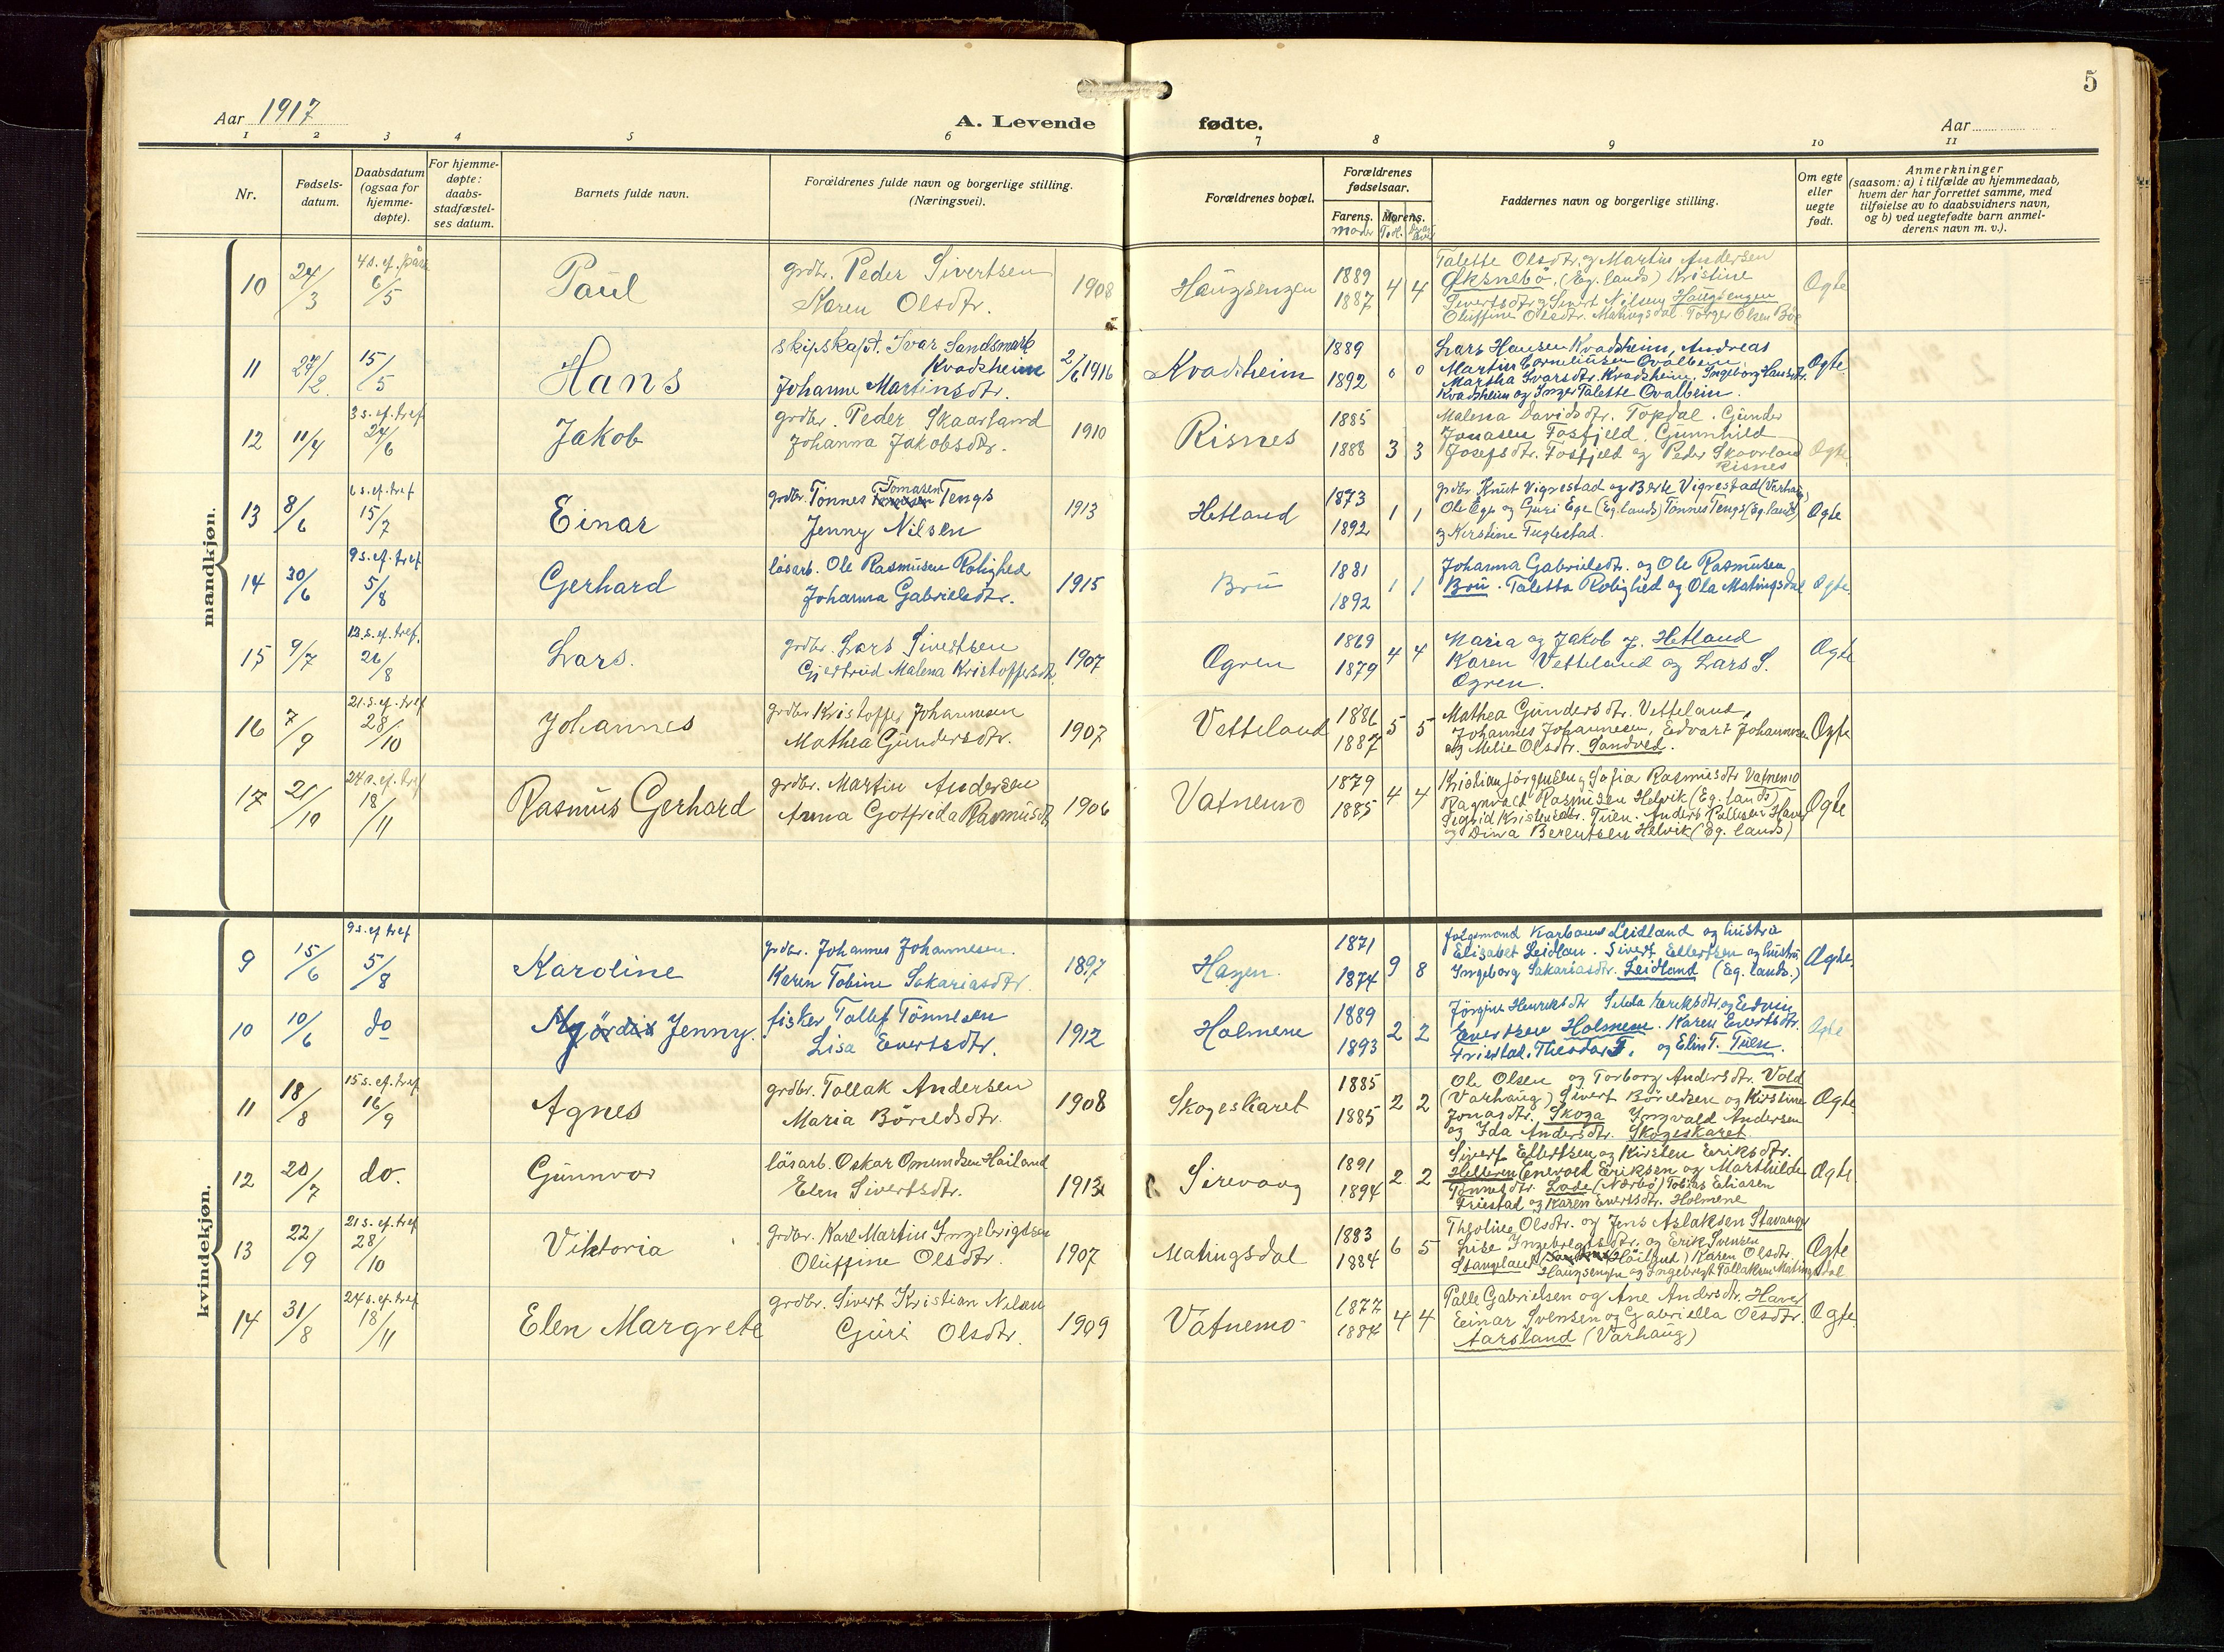 5
Aar 1917
A. Levende fødte.
Aar
1 2 3 4 5 6 7 8 9 10 11
Nr.
Fødsels-
datum.
Daabsdatum
(ogsaa for
hjemme-
døpte).
For hjemme-
døpte:
daabs-
stadfæstel-
ses datum.
Barnets fulde navn.
Forældrenes fulde navn og borgerlige stilling.
(Næringsvei).
Forældrenes bopæl.
Forældrenes
fødselsaar.
Farens. Morens.
Faddernes navn og borgerlige stilling.
Om egte
eller
uegte
født.
Anmerkninger
(saasom: a) i tilfælde av hjemmedaab,
hvem der har forrettet samme, med
tilføielse av to daabsvidners navn,
og b) ved uegtefødte barn anmel-
derens navn m. v.).
mandkjøn.
10 24/3 4 s. ef. påske 6/5 Paul
grdbr. Peder Sivertsen
Karen Olsdtr. 1908
Haugsengen 1889 1887 4 4
Talette Olsdtr. og Martin Andersen
Øksnebø, (Eg. lands) Kristine
Sivertsdtr. og Sivert Nilsen Haugsengen
Oluffine Olsdtr. Matingsdal. Torger Olsen Bøe
Ægte
11 27/2 15/5 Hans
skipskapt. Ivar Sandsmark
Kvadsheim
Johanne Martinsdtr. 2/6 1916
Kvadsheim 1889 1892 0 0
Lars Hansen Kvadsheim, Andreas
Martin Corneliusen Ovalbein
Martha Ivarsdtr. Kvadsheim, Ingeborg Hansdtr.
Kvadsheim og Inger Talette Ovalbein.
Ægte
12 11/4 3 s. ef. tref 24/6 Jakob
grdbr. Peder Skaarland
Johanna Jakobsdtr. 1910
Risnes 1885 1888 3 3
Malena Davidsdtr. Topdal. Gunder
Jonasen Fosfjeld. Gunnhild
Josefsdtr. Fosfjeld og Peder Skaarland
Risnes
Ægte
13 8/6 6 s. ef. tref 15/7 Einar
grdbr. Tønnes Tomasen Tengs
Jenny Nilsen 1913
Hetland 1873 1892 1 1
grdbr Knut Vigrestad og Berte Vigrestad (Varhaug)
Ole Ege og Guri Ege (Eg. lands) Tønnes Tengs (Eg. lands)
og Kirstine Fuglestad.
Ægte
14 30/6 9 s. ef. tref 5/8 Gerhard
løsarb. Ole Rasmusen Rolighed
Johanna Gabrielsdtr. 1915
Bru 1881 1892 1 1
Johanna Gabrielsdtr. og Ole Rasmusen
Bru. Taletta Rolighed og Ola Matingsdal
Ægte.
15 9/7 12. s. ef. tref. 26/8 Lars.
grdbr. Lars Sivertsen
Gjertrud Malena Kristoffersdtr. 1907
Ogren 1869 1879 4 4
Maria og Jakob J. Hetland
Karen Vetteland og Lars S.
Ogren.
Ægte
16 7/9 21. s. ef. tref 28/10 Johannes
grdbr Kristoffer Johannesen
Mathea Gundersdtr. 1907
Vetteland 1886 1887 5 5
Mathea Gundersdtr. Vetteland,
Johannes Johannesen, Edvart Johannesen
og Melie Olsdtr. Sandved.
Ægte
17 21/10 24 s. ef. tref 18/11 Rasmus Gerhard
grdbr. Martin Andersen
Anna Gotfrida Rasmusdtr. 1906
Vatnemo 1879 1885 4 4
Kristian Jørgensen og Sofia Rasmusdtr Vatnemo
Ragnvald Rasmusen Helvik (Eg. lands)
Sigrid Kristensdtr. Tuen. Anders Pallesen Haver
og Dina Berentsen Helvik (Eg. lands)
Ægte
kvindekjøn.
9 15/6 9 s. ef tref 5/8 Karoline
grdbr. Johannes Johannesen.
Karen Tobine Sakariasdtr. 1897
Hagen. 1871 1874 9 8
Leidland og hustru
Elisabet Leidlan. Sivert Ellertsen og hustru
Ingeborg Sakariasdtr. Leidland (Eg. lands.)
Ægte.
10 10/6 do Jenny.
fisker Tollef Tønnesen
Lisa Evertsdtr. 1912
Holmene 1889 1893 2 2
Jørgine Henriksdtr Eriksdtr. og Edvin
Evertsen Holmene. Karen Evertsdtr.
Friestad. Theodor T. og Elin T. Tuen.
Ægte
11 18/8 15 s. ef. tref 16/9 Agnes
grdbr. Tollak Andersen
Maria Børildsdtr. 1908
Skogeskaret 1885 1885 2 2
Ole Olsen og Torborg Andersdtr. Vold
(Varhaug) Sivert Børildsen og Kirstine
Jonasdtr. Skoga Ingvald Andersen
og Ida Andersdtr. Skogeskaret.
Ægte
12 20/7 do. Gunnvor
løsarb. Oskar Omundsen Høiland
Elen Sivertsdtr. 1913
Sirevaag 1891 1894 2 2
Sivert Ellertsen og Kirsten Eriksdtr.
Helleren Enevald Eriksen og Marthilde
Tønnesdtr. Lode (Nærbø) Tobias Eliasen
Friestad og Karen Evertsdtr. Holmene
Ægte
13 22/9 21 s. ef. tref 28/10 Viktoria
grdbr. Karl Martin Ingebrigtsen
Oluffine Olsdtr. 1907
Matingsdal 1883 1884 6 5
Theoline Olsdtr. og Jens Aslaksen Stavanger
Lise Ingebregtsdtr. og Erik Svensen
Stangeland Karen Olsdtr.
Haugsengen og Ingebregt Tollaksen Matingsdal
Ægte
14 31/8 24 s. ef. tref 18/11 Elen Margrete
grdbr. Sivert Kristian Nilsen
Guri Olsdtr. 1909
Vatnemo 1877 1884 4 4
Palle Gabrielsen og Ane Andersdtr. Haver
Einar Svensen og Gabriella Olsdtr.
Aarsland (Varhaug)
Ægte.